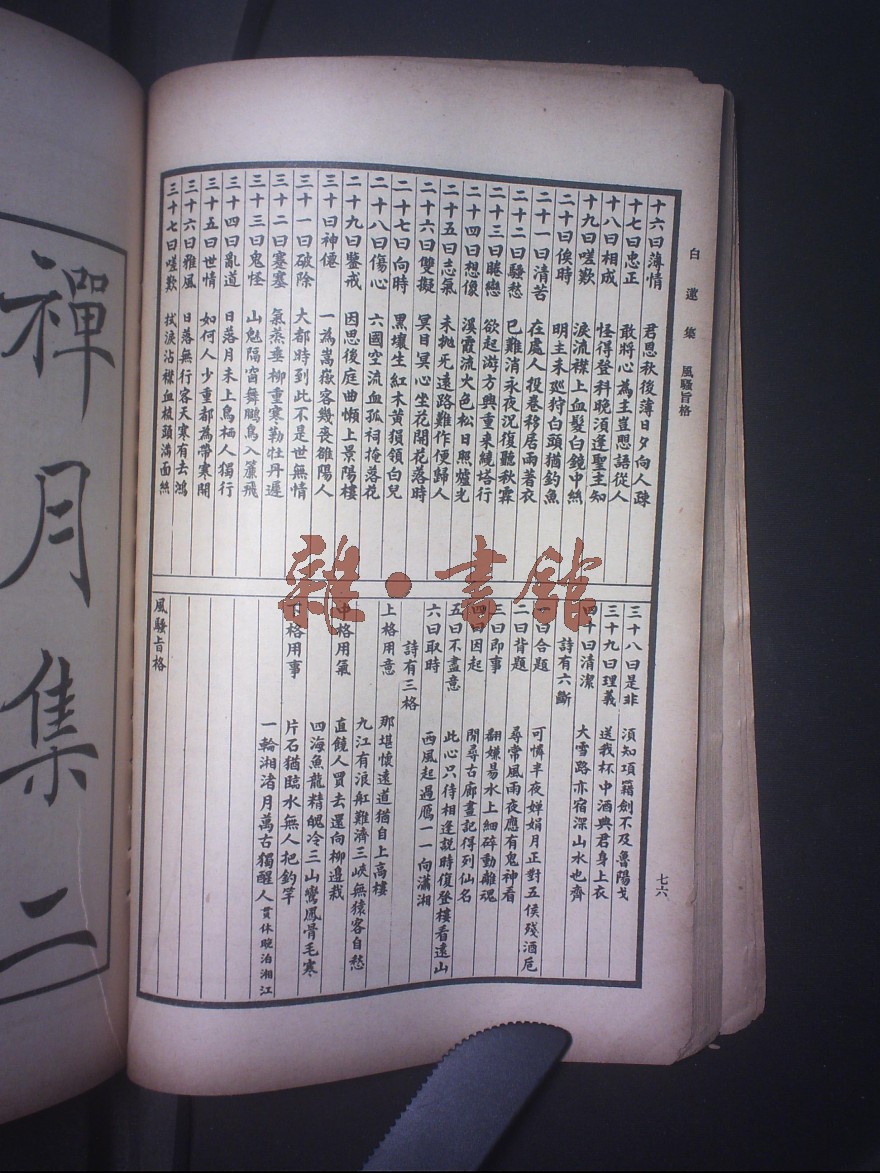 白蓮集 風騷旨格
七六
十六曰薄情 君恩秋後薄日夕向人疎
十七曰忠正 敢將心為主豈思語從人
十八曰相成 怪得登科晚須逢聖主知
十九曰嗟歎 淚流襟上血髮白鏡中絲
二十曰俟時 明主未巡狩白頭猶釣魚
二十一曰清苦 在處人投卷移居雨著衣
二十二曰騷愁 已難消永夜況復聽秋霖
二十三曰睠戀 欲起游方興重來繞塔行
二十四曰想像 溪霞流火色松日照爐光
二十五曰志氣 未抛死遠路難作便歸人
二十六曰雙擬 冥目冥心坐花開花落時
二十七曰向時 黑壤生紅朮黃猿領白兒
二十八曰傷心 六國空流血孤祠掩落花
二十九曰鑒戒 因思後庭曲懶上景陽樓
三十曰神僊 一為嵩嶽客幾喪雒陽人
三十一曰破除 大都時到此不是世無情
三十二曰蹇塞 氣蒸垂柳重寒勒牡丹遲
三十三曰鬼怪 山魈隔窗舞鵩鳥入簾飛
三十四曰亂道 日落月未上鳥栖人獨行
三十五曰世情 如何人少重都為帶寒開
三十六曰雅風 日落無行客天寒有去鴻
三十七曰嗟歎 拭淚沾襟血梳頭滿面絲
三十八曰是非 須知項籍劍不及魯陽戈
三十九曰理義 送我杯中酒與君身上衣
四十曰清潔 大雪路亦宿深山水也齊
詩有六斷
一曰合題 可憐半夜嬋娟月正對五侯殘酒卮
二曰背題 尋常風雨夜應有鬼神看
三曰即事 翻嫌易水上細碎動離魂
四曰因起 閒尋古廊畫記得列仙名
五曰不盡意 此心只待相逢說時復登樓看遠山
六曰取時 西風起過鴈一一向瀟湘
詩有三格
上格用意 那堪懷遠道猶自上高樓
九江有浪船難濟三峽無猿客自愁
中格用氣 直饒人買去還向柳邊栽
四海魚龍精魄冷三山鸞鳳骨毛寒
下格用事 片石猶臨水無人把釣竿
一輪湘渚月萬古獨醒人貫休晚泊湘江
風騷旨格
禪月集二
雜·書館